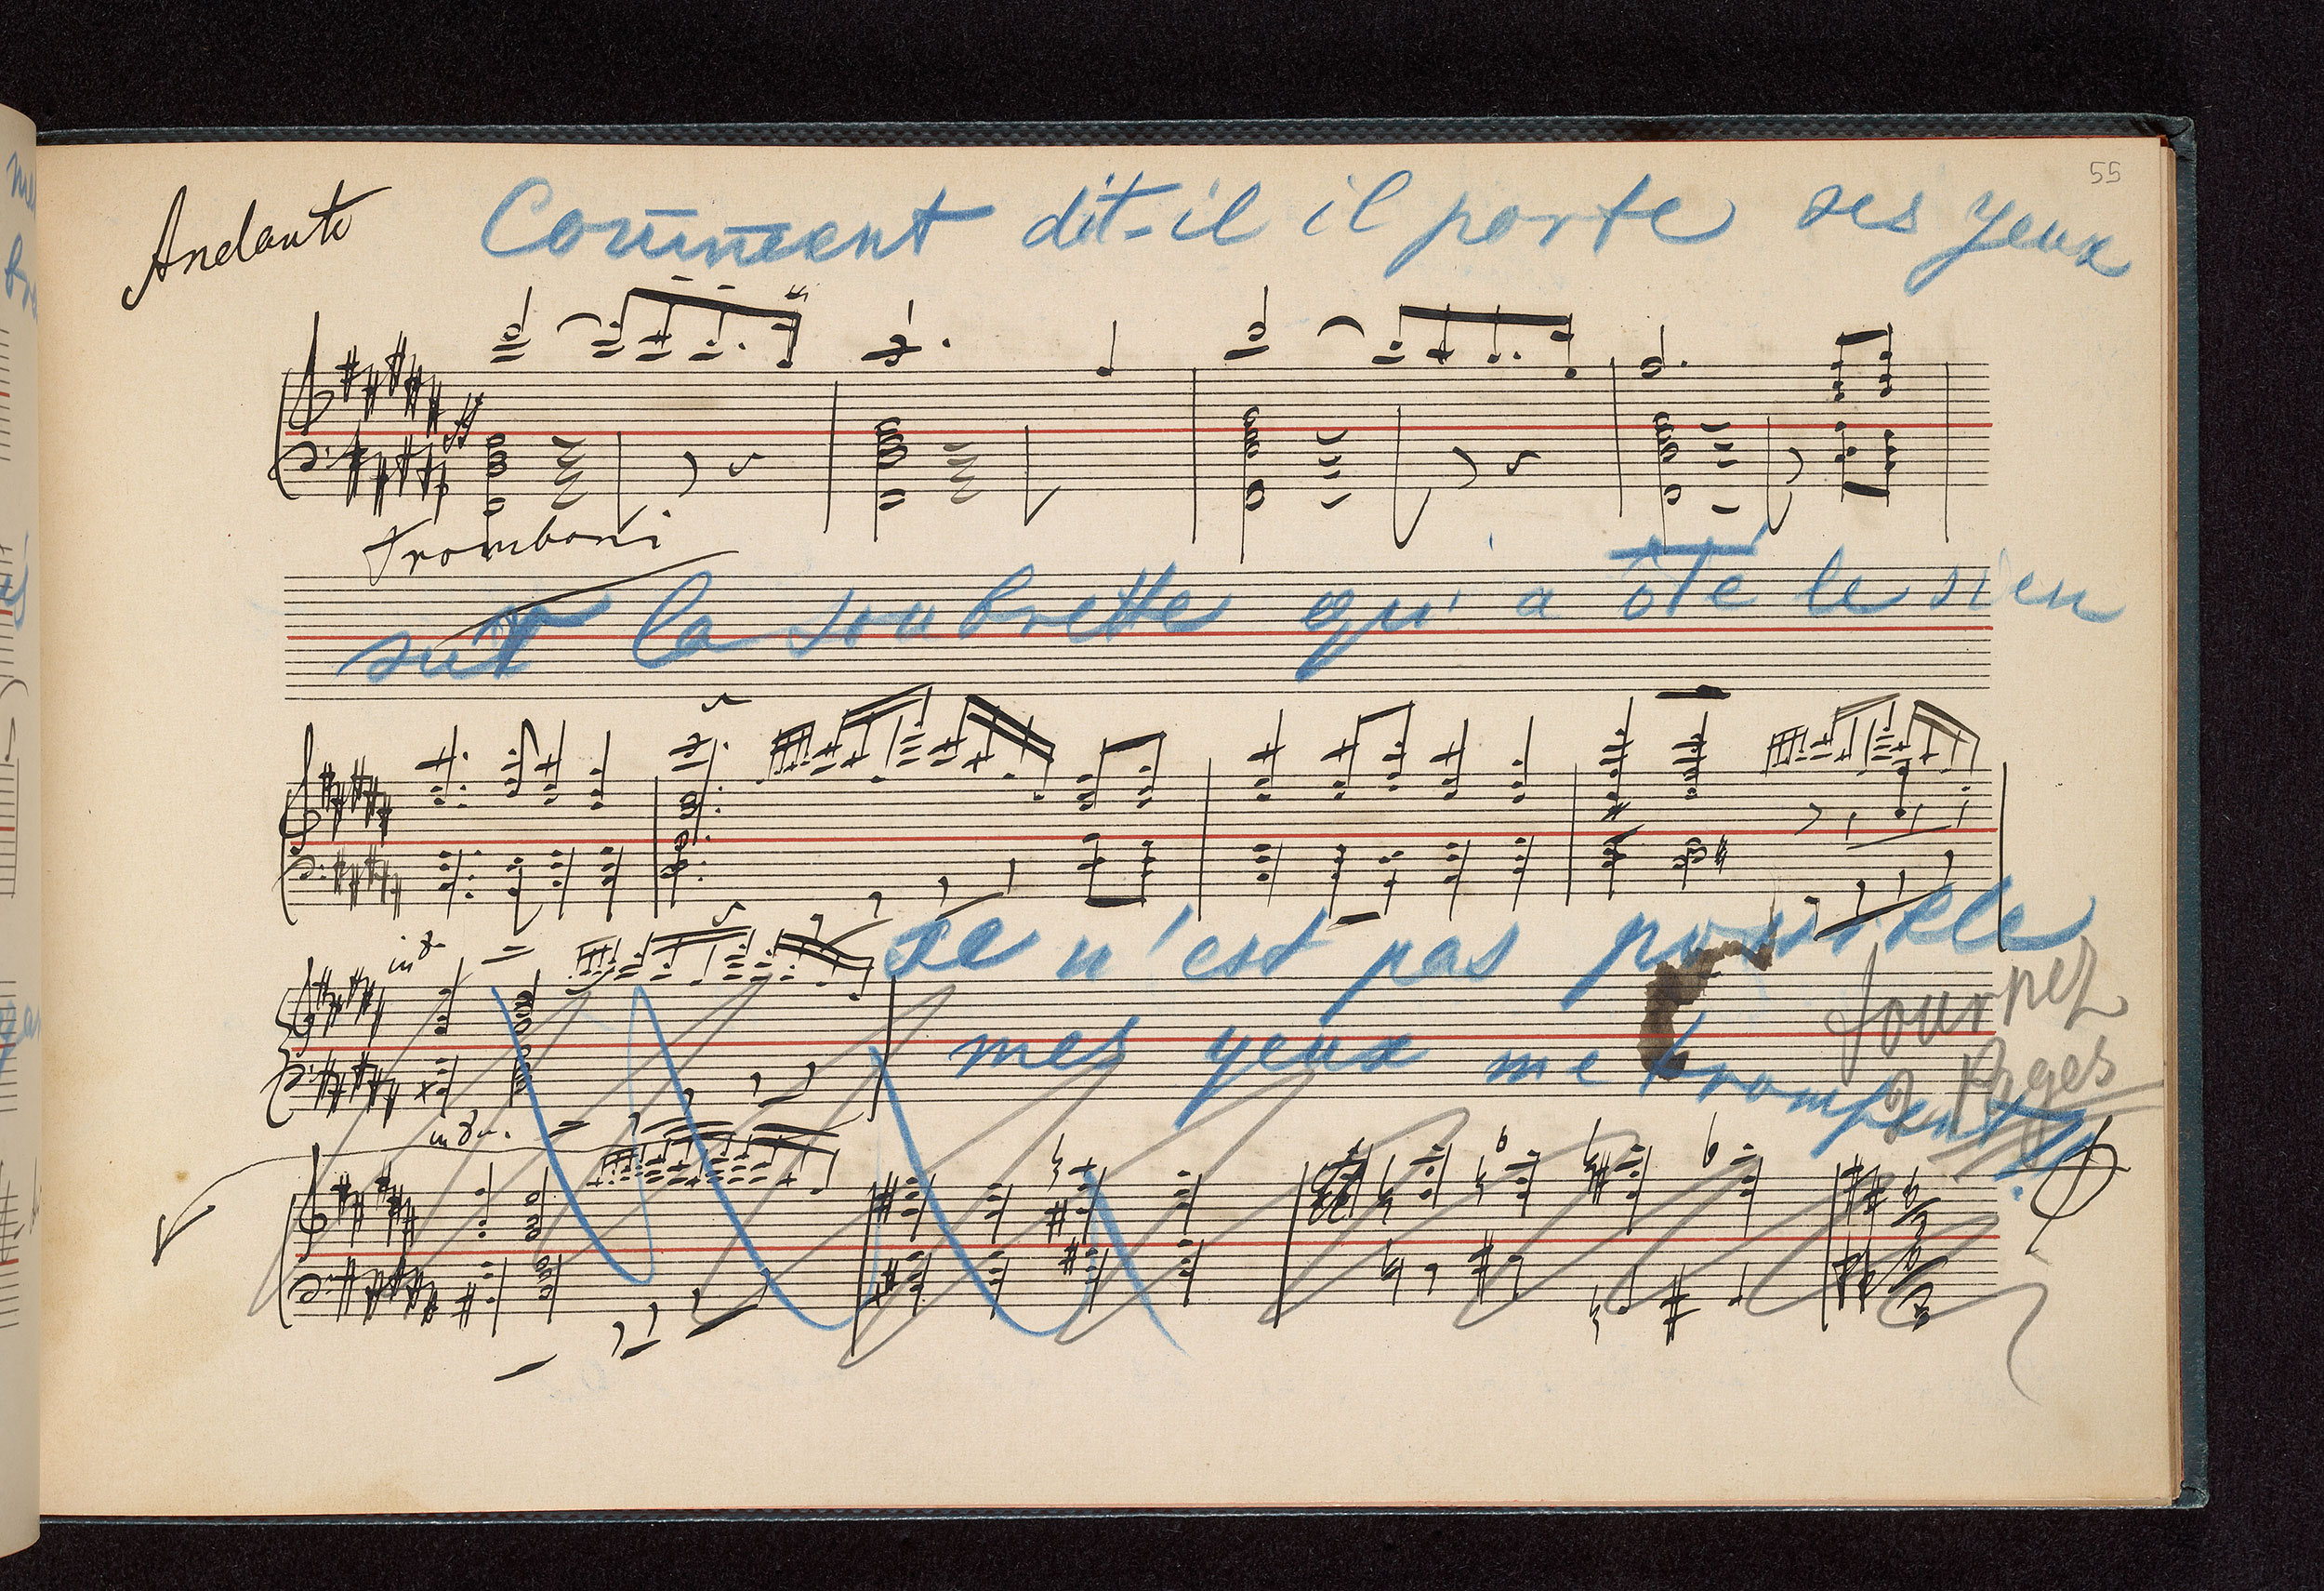 55
Andante
Comment dit-il il porte ses yeux
ff
Tromboni
sur la soubrette qu'a ôté le sien
in 8a
ce n'est pas possible
Tournez
mes yeux me trompent?
2 Pages
in 8a